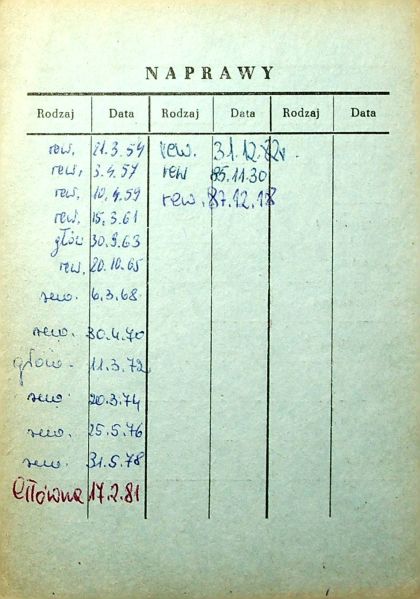 NAPRAWY
Rodzaj Data Rodzaj Data Rodzaj Data
rew. 21.3.54 rew. 31.12.82r
rew. 3.4.57 rew 85.11.30
rew. 10.4.59 rew. 87.12.18
rew. 15.3.61
głów 30.9.63
rew. 20.10.65
rew. 6.3.68
rew. 30.4.70
głów. 11.3.72
rew. 20.3.74
rew. 25.5.76
rew. 31.5.78
Główna 17.2.81